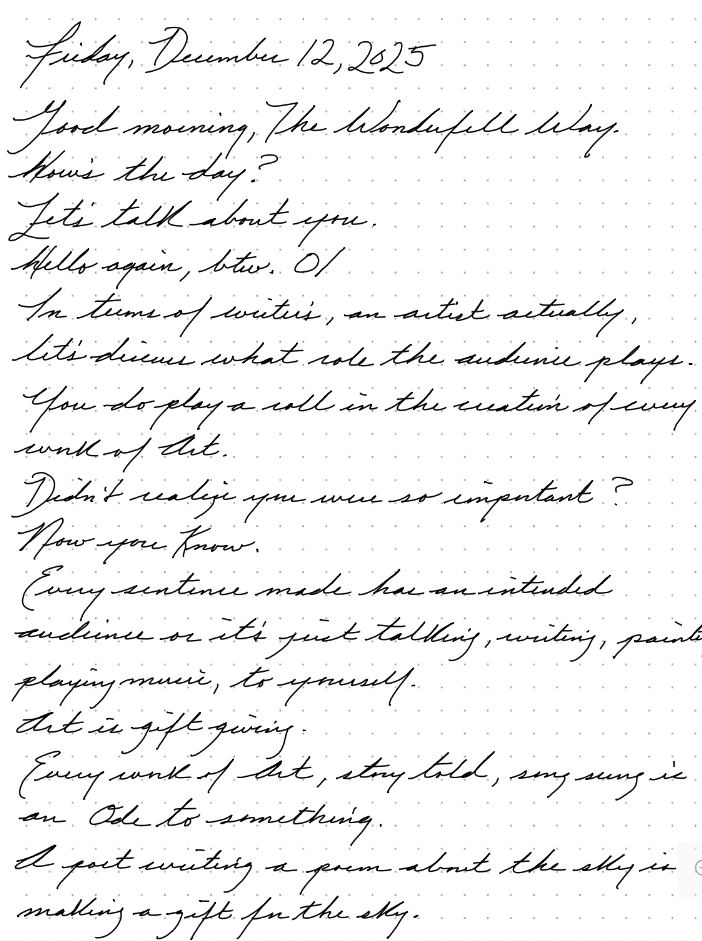 Friday, December 12, 2025
Good morning, The Wonderfull Way.
How's the day?
Let's talk about you.
Hello again, btw. O/
In terms of writer's, an artist actually,
let's discuss what role the audience plays.
You do play a roll in the creation of every
work of Art.
Didn't realize you were so important?
Now you Know.
Every sentence made has an intended
audience or it's just talking, writing, painti
playing music, to yourself.
Art is gift giving.
Every work of Art, story told, song sung is
an Ode to something.
A poet writing a poem about the sky is
making a gift for the sky.